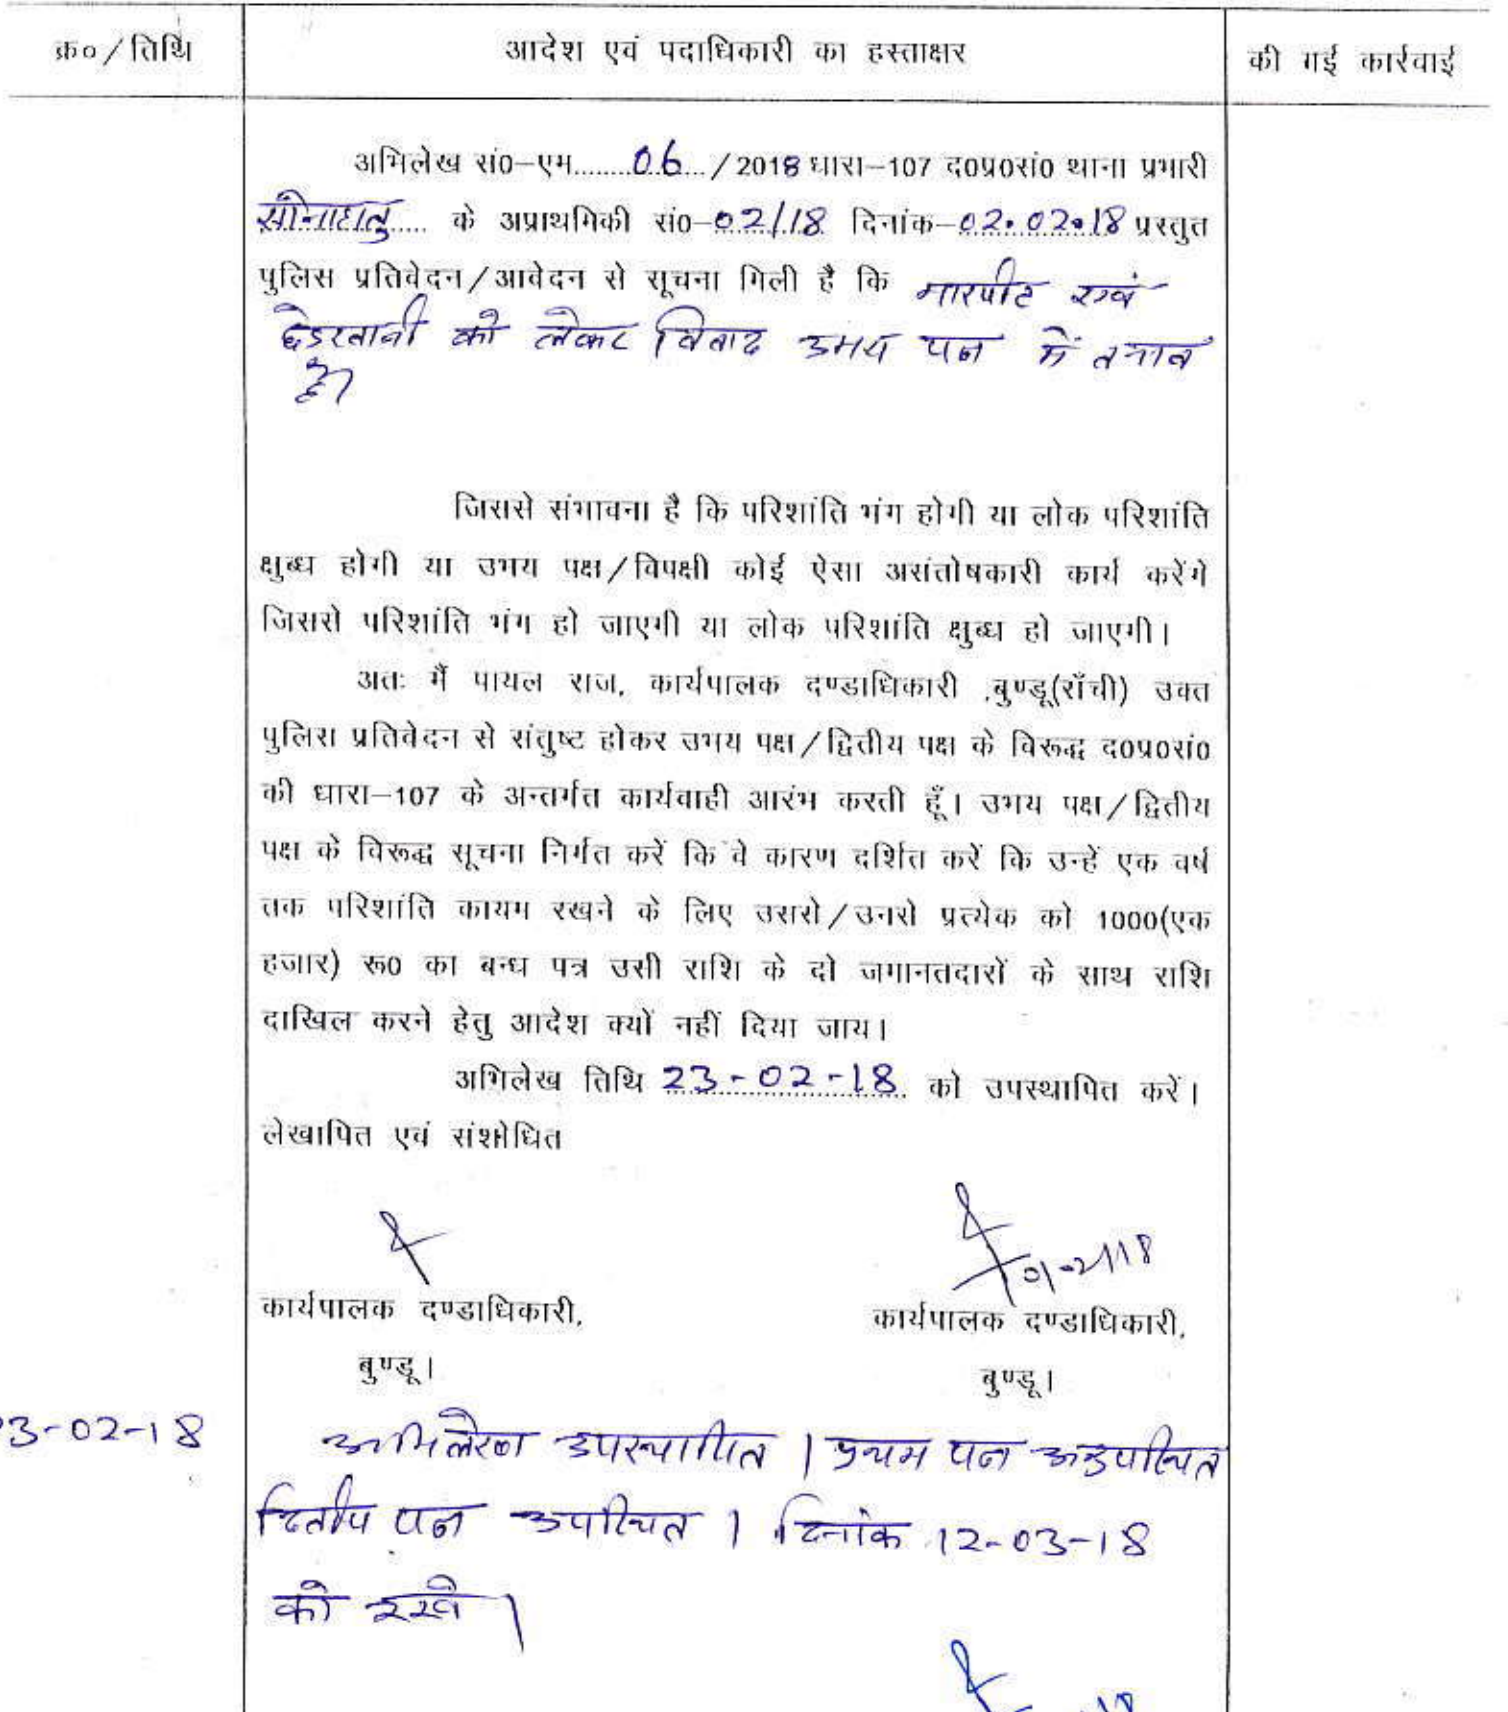 क्र०/तिथि आदेश एवं पदाधिकारी का हस्ताक्षर की गई कार्रवाई
अभिलेख सं०-एम........06.../2018 धारा-107 द०प्र०सं० थाना प्रभारी
सोनाहातु..... के अप्राथमिकी सं०-02/18 दिनांक-02.02.18 प्रस्तुत
पुलिस प्रतिवेदन/आवेदन से सूचना मिली है कि मारपीट एवं
को लेकर विवाद उभय पक्ष में तनाव
है।
जिससे संभावना है कि परिशांति भंग होगी या लोक परिशांति
क्षुब्ध होगी या उभय पक्ष/विपक्षी कोई ऐसा असंतोषकारी कार्य करेंगे
जिससे परिशांति भंग हो जाएगी या लोक परिशांति क्षुब्ध हो जाएगी।
अतः मैं पायल राज, कार्यपालक दण्डाधिकारी ,बुण्डू(राँची) उक्त
पुलिस प्रतिवेदन से संतुष्ट होकर उभय पक्ष/द्वितीय पक्ष के विरूद्ध द०प्र०सं०
की धारा-107 के अन्तर्गत कार्यवाही आरंभ करती हूँ। उभय पक्ष/द्वितीय
पक्ष के विरूद्ध सूचना निर्गत करें कि वे कारण दर्शित करें कि उन्हें एक वर्ष
तक परिशांति कायम रखने के लिए उससे/उनसे प्रत्येक को 1000(एक
हजार) रू० का बन्ध पत्र उसी राशि के दो जमानतदारों के साथ राशि
दाखिल करने हेतु आदेश क्यों नहीं दिया जाय।
अभिलेख तिथि 23-02-18 को उपस्थापित करें।
लेखापित एवं संशोधित
कार्यपालक दण्डाधिकारी, कार्यपालक दण्डाधिकारी,
बुण्डू। बुण्डू।
3-02-18 अभिलेख उपस्थापित । प्रथम पक्ष अनुपस्थित
द्वितीय पक्ष उपस्थित । दिनांक 12-03-18
को रखें ।